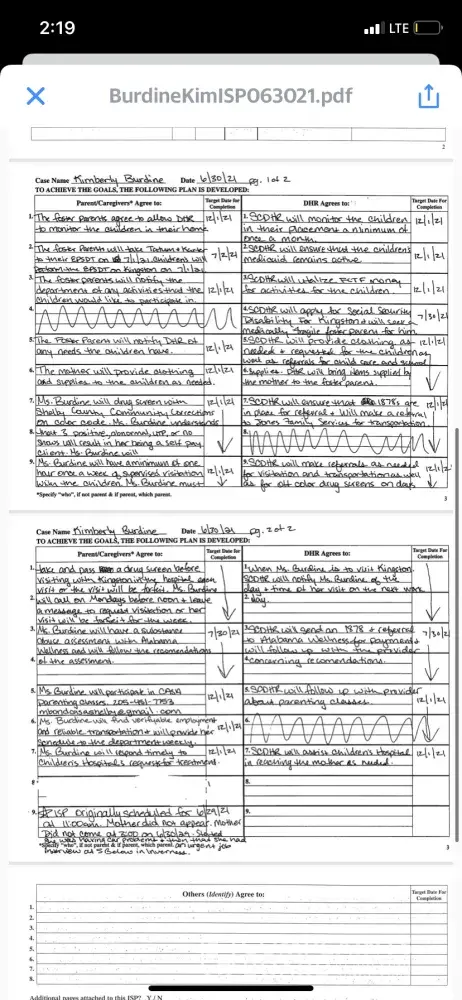 2:19
LTE
BurdineKimISP063021.pdf
2
Case Name Kimberly Burdine Date 6/30/21 pg. 1 of 2
TO ACHIEVE THE GOALS, THE FOLLOWING PLAN IS DEVELOPED:
Parent/Caregivers* Agree to:
Target Date for Completion
DHR Agrees to:
Target Date For Completion
1. The foster parents agree to allow DHR 12/1/21
to monitor the children in their home
1. SCDHR will monitor the children 12/1/21
in their placement a minimum of
once a month.
2. The foster parents will take Tatum + Hunter 7/2/21
to their EPSDT on 7/1/21. Children's will
perform the EPSDT on Kingston on 7/1/21
2. SCDHR will ensure that the children's 12/1/21
medicaid remains active
3. The foster parents will notify the 12/1/21
department of any activities that the
children would like to participate in.
3. SCDHR will utalize FCTF money 12/1/21
for activities for the children
4.
4. SCDHR will apply for Social Security 7/30/21
Disability for Kingston + will seek a
medically fragile foster parent for him
5. The Foster Parent will notify DHR of 12/1/21
any needs the children have.
5. SCDHR will provide clothing as 12/1/21
needed + requested for the children as
well as referrals for child care and school
6. The mother will provide clothing 12/1/21
and supplies to the children as needed.
6. Supplies. DHR will bring items supplied by
the mother to the foster parent.
7. Ms. Burdine will drug screen with 12/1/21
Shelby County Community Corrections
on color code. Ms. Burdine understands
7. SCDHR will ensure that 1878s are 12/1/21
in place for referral + will make a referral
to Jones Family Services for transportation.
8. that a positive, abnormal, UTP, or no
shows will result in her being a self pay
client. Ms. Burdine will
8.
9. Ms. Burdine will have a minimum of one 12/1/21
hour once a week of supervised visitation
with the children. Ms. Burdine must
9. SCDHR will make referrals as needed 12/1/21
for visitation and transportation as well
as for off color drug screens on days
*Specify "who", if not parent & if parent, which parent.
3
Case Name Kimberly Burdine Date 6/30/21 pg. 2 of 2
TO ACHIEVE THE GOALS, THE FOLLOWING PLAN IS DEVELOPED:
Parent/Caregivers* Agree to:
Target Date for Completion
DHR Agrees to:
Target Date For Completion
1. take and pass a drug screen before
visiting with Kingston in the hospital each
visit or the visit will be forfeit. Ms. Burdine
1. when Ms. Burdine is to visit Kingston.
SCDHR will notify Ms. Burdine of the
day + time of her visit on the next work
2. will call on Mondays before noon + leave
a message to request visitation or her
visit will be forfeit for the week.
2. day.
3. Ms. Burdine will have a substance 7/30/21
abuse assessment with Alabama
Wellness and will follow the recomendations
3. SCDHR will send an 1878 + referral 7/30/21
to Alabama Wellness for payment +
will follow up with the provider
4. of the assessment.
4. concerning recomendations.
5. Ms Burdine will participate in CASA 12/1/21
Parenting classes. 205-451-7753
5. SCDHR will follow up with provider 12/1/21
about parenting classes.
6. Ms. Burdine will find verifyable employment 12/1/21
and reliable transportation + will provide her
schedule to the department weekly.
6.
7. Ms. Burdine will respond timely to 12/1/21
Children's Hospital's requests for treatment.
7. SCDHR will assist children's hospital 12/1/21
in reaching the mother as needed.
8.
8.
9. ISP originally scheduled for 6/29/21
at 11:00am. Mother did not appear. Mother
Did not come at 2:00 on 6/30/21. Stated
she was having car problems + then that she had
an urgent job
interview at 5 Below in Inverness.
9.
*Specify "who", if not parent & if parent, which parent.
3
Others (Identify) Agree to:
Target Date For Completion
1.
2.
3.
4.
5.
6.
7.
8.
Additional pages attached to this ISP? Y / N